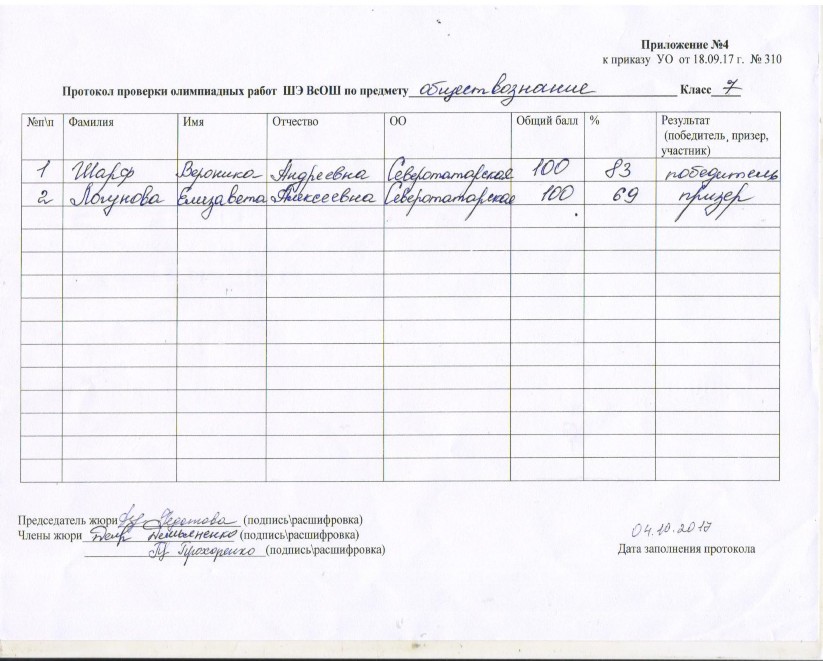 Приложение №4
к приказу УО от 18.09.17 г. № 310
Протокол проверки олимпиадных работ ШЭ ВсОШ по предмету обществознание Класс 7
№п\п Фамилия Имя Отчество ОО Общий балл % Результат (победитель, призер, участник)
1 Шарф Вероника Андреевна Северотатарское 100 83 победитель
2 Логунова Елизавета Алексеевна Северотатарское 100 69 призер
Председатель жюри Федотова (подпись\расшифровка)
Члены жюри Демьяненко (подпись\расшифровка)
Прохоренко (подпись\расшифровка)
04.10.2017
Дата заполнения протокола